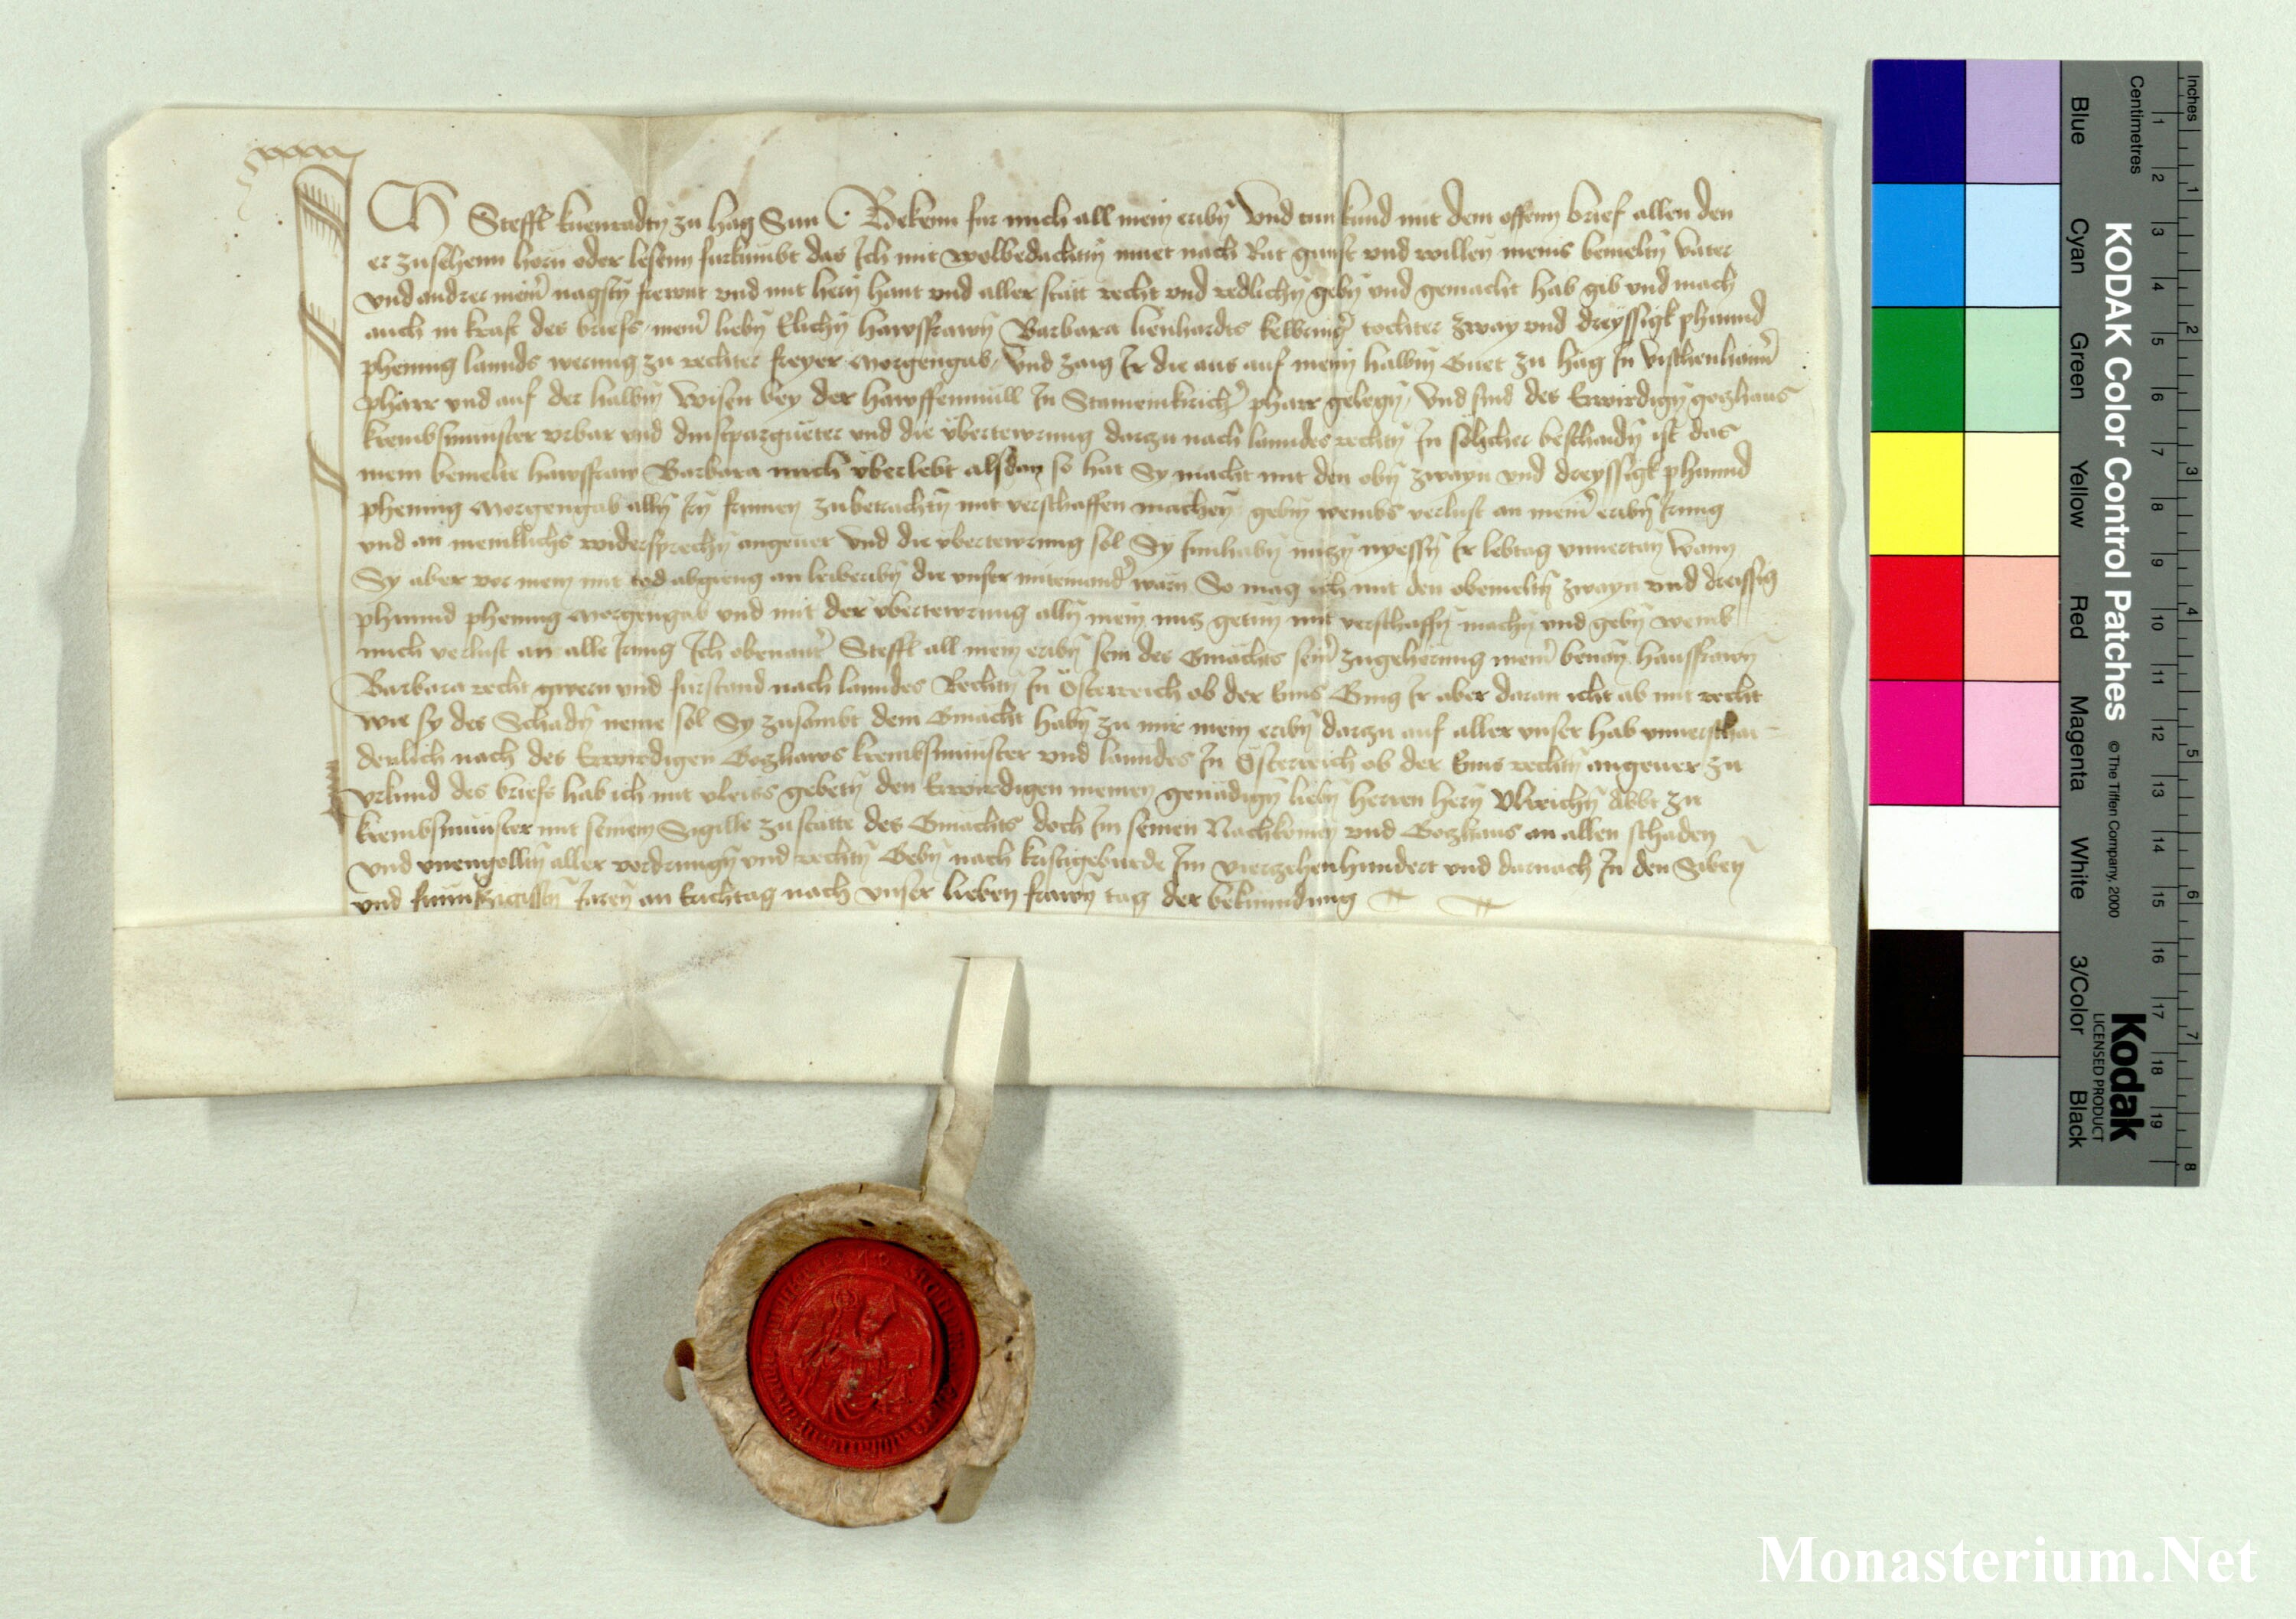 Ich Steffl kuenradtn zu hag Sun Bekenn fur mich all mein eribn Und tun kund mit dem offenn brief allen den
er zusehenn horn oder lesenn furkumbt das Ich mit wolbedachtm muet nach Rat gunst und willen meins bemeltn Vater
und andrer meinr nagstn frewnt und mit herrn hant und aller statt recht und redlichn gebn und gemacht hab gib und mach
auch in kraft des briefs meinr liebn Elichn hawsfrawn Barbara lienhardts tochter zway und dreyssigk phunnd
phening lannds werung zu rechter freyer Morgengab Und zaig Ir die aus auf mein halbm Guet zu hag In
pharr und auf der halbm Wisen bey der hawffenmüll In Stameinkirichr pharr gelegn Und sind des Erwirdign gozhaus
krembsmünster urbar und güeter und die ubertewrung darzu nach lanndes rechtn In sölicher beschaidn ist das
mein bemelte hawsfraw Barbara mich überlebt alsdan so hat Sy macht mit den obn zwayn und dreyssigk phunnd
phening Morgengab alln Irn frumen zubetrachtn mit verschaffen machen gebn wembs verlust an meinr eribn Irrung
und an menklichs widersprechn angeuer Und die ubertewrung sol Sy Innhabn nuzn nyessn Ir lebtag unuertan Wann
Sy aber vor mein mit tod abgieng an leiberibn die unser miteinandr warn So mag ich mit den obemeltn zwayn und dreissig
phunnd phening Morgengab und mit der ubertewrung alln mein nuz getun mit verschaffn machn und gebn wemb
mich verlust an alle Irrung Ich obenantr Steffl all mein eribn sein des Gmächts seinr zugehörung meinr benantn hausfrawn
Barbara recht gwern und fürstand nach lanndes Rechtn In Österreich ob der Enns Gieng Ir aber daran icht ab mit recht
wie sy des Schadn neme sol Sy zusambt dem Gmächt habn zu mir mein eribn darzu auf aller unser hab unuerschai
denlich nach des Erwirdigen Gozhaws krembsmünster und lanndes In Österreich ob der Enns rechtn angeuer zu
Urkund des briefs hab ich mit vleiss gebetn den Erwirdigen meinen genädign liebn herren hern Ulreichn Abbt zu
krembsmünster mit seinem Sigille zu stätte des Gmächts doch Im seinen Nachkomen und Gozhaus an allen schaden
und unengoltn aller vordrungn und rechtn Gebn nach kristigeburde Im vierzehenhundert und darnach In den Siben
und funnfzigistn Jaren an Erichtag nach unser lieben frawn tag der bekunndung
KODAK Color Control Patches
© The Tiffen Company, 2000
Kodak
LICENSED PRODUCT
Blue Cyan Green Yellow Red Magenta White 3/Color Black
Inches 1 2 3 4 5 6 7 8
Centimetres 1 2 3 4 5 6 7 8 9 10 11 12 13 14 15 16 17 18 19
Monasterium.Net